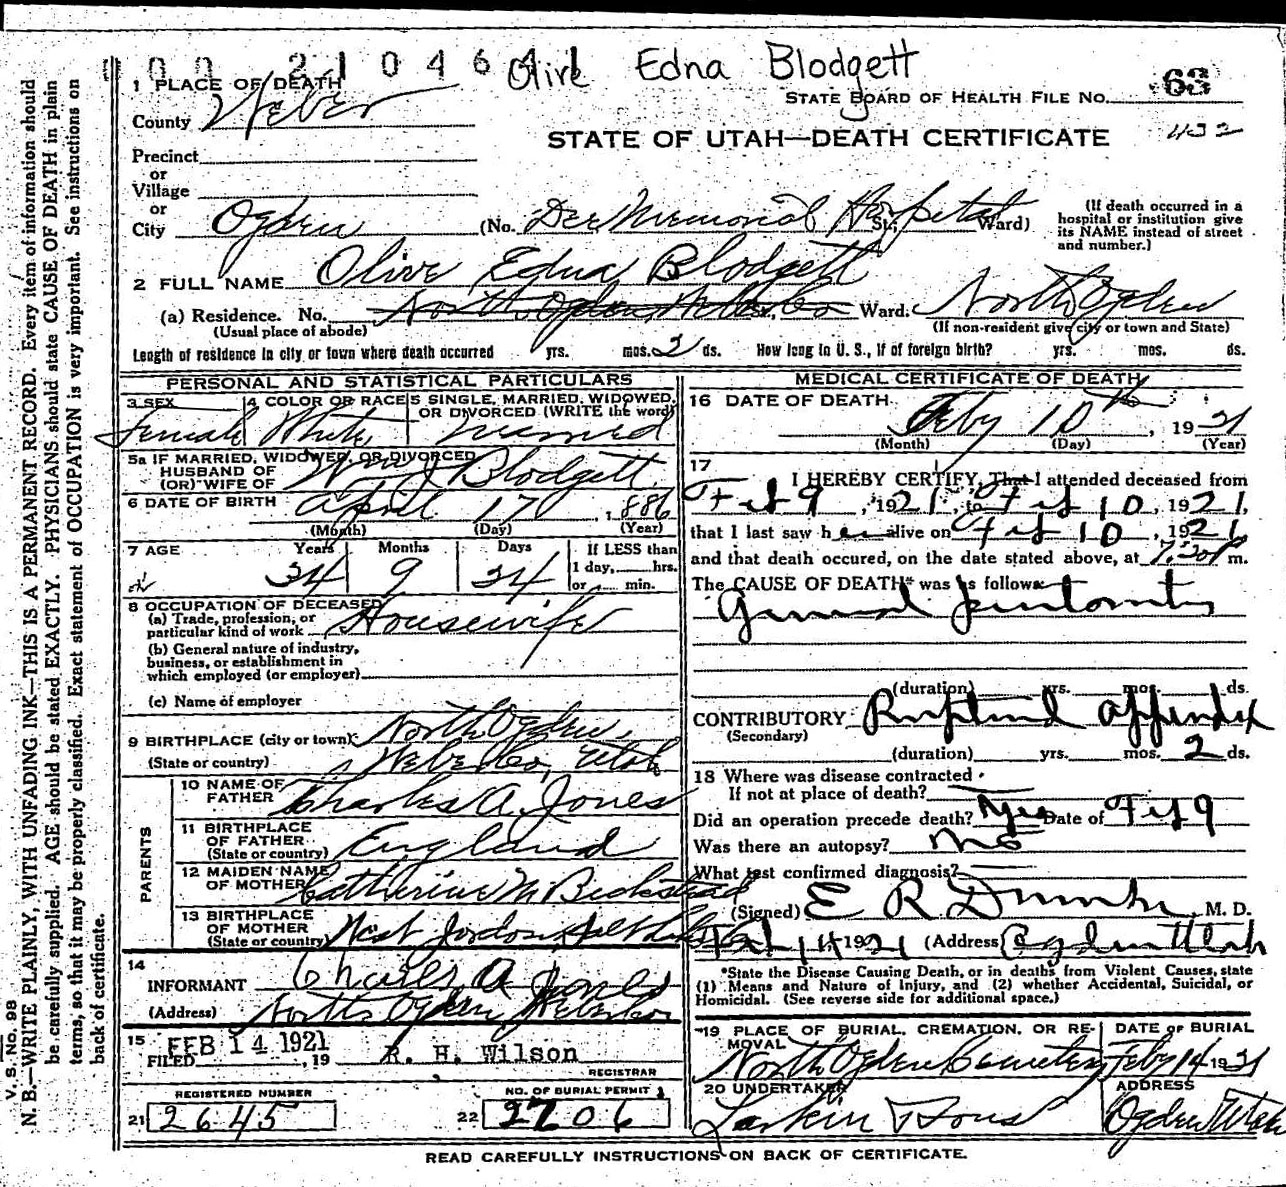 002104641 Olive Edna Blodgett
1 PLACE OF DEATH
STATE BOARD OF HEALTH FILE NO. 63
County Weber
STATE OF UTAH—DEATH CERTIFICATE 432
Precinct
or
Village
or
City Ogden (No. Dee Memorial Hospital St., Ward)
(If death occurred in a hospital or institution give its NAME instead of street and number.)
2 FULL NAME Olive Edna Blodgett
(a) Residence. No. North Ogden, Weber Co St., Ward. North Ogden
(Usual place of abode) (If non-resident give city or town and State)
Length of residence in city or town where death occurred yrs. mos. 2 ds. How long in U. S., if of foreign birth? yrs. mos. ds.
PERSONAL AND STATISTICAL PARTICULARS
3 SEX 4 COLOR OR RACE 5 SINGLE, MARRIED, WIDOWED,
OR DIVORCED (WRITE the word)
Female White married
5a IF MARRIED, WIDOWED, OR DIVORCED
HUSBAND OF
(OR) WIFE OF Wm J Blodgett
6 DATE OF BIRTH April 17, 1886
(Month) (Day) (Year)
7 AGE Years Months Days If LESS than
1 day, hrs.
34 9 24 or min.
8 OCCUPATION OF DECEASED
(a) Trade, profession, or
particular kind of work Housewife
(b) General nature of industry,
business, or establishment in
which employed (or employer)
(c) Name of employer
9 BIRTHPLACE (city or town) North Ogden,
(State or country) Weber Co, Utah
PARENTS
10 NAME OF
FATHER Charles A. Jones
11 BIRTHPLACE
OF FATHER
(State or country) England
12 MAIDEN NAME
OF MOTHER Catherine M Beckstead
13 BIRTHPLACE
OF MOTHER
(State or country) West Jordon, Salt Lake
14
INFORMANT Charles A Jones
(Address) North Ogden Weber Co
15 FILED FEB 14 1921, 19 R. H. Wilson
REGISTRAR
REGISTERED NUMBER NO. OF BURIAL PERMIT
21 2645 22 2706
MEDICAL CERTIFICATE OF DEATH
16 DATE OF DEATH
Feby 10th, 1921
(Month) (Day) (Year)
17
I HEREBY CERTIFY, That I attended deceased from
Feb 9, 1921, to Feb 10, 1921,
that I last saw her alive on Feb 10, 1921
and that death occured, on the date stated above, at 7:30 P m.
The CAUSE OF DEATH* was as follows:
General peritonitis
(duration) yrs. mos. ds.
CONTRIBUTORY Ruptured appendix
(Secondary)
(duration) yrs. mos. 2 ds.
18 Where was disease contracted
If not at place of death?
Did an operation precede death? Yes Date of Feb 9
Was there an autopsy? No
What test confirmed diagnosis?
(Signed) E R Dumke, M. D.
Feb 14, 1921 (Address) Ogden Utah
*State the Disease Causing Death, or in deaths from Violent Causes, state
(1) Means and Nature of Injury, and (2) whether Accidental, Suicidal, or
Homicidal. (See reverse side for additional space.)
19 PLACE OF BURIAL, CREMATION, OR RE- DATE OF BURIAL
MOVAL
North Ogden Cemetery Feby 14 1921
20 UNDERTAKER ADDRESS
Larkin & Sons Ogden Utah
READ CAREFULLY INSTRUCTIONS ON BACK OF CERTIFICATE.
V. S. No. 98
N. B.—WRITE PLAINLY, WITH UNFADING INK—THIS IS A PERMANENT RECORD. Every item of information should
be carefully supplied. AGE should be stated EXACTLY. PHYSICIANS should state CAUSE OF DEATH in plain
terms, so that it may be properly classified. Exact statement of OCCUPATION is very important. See instructions on
back of certificate.